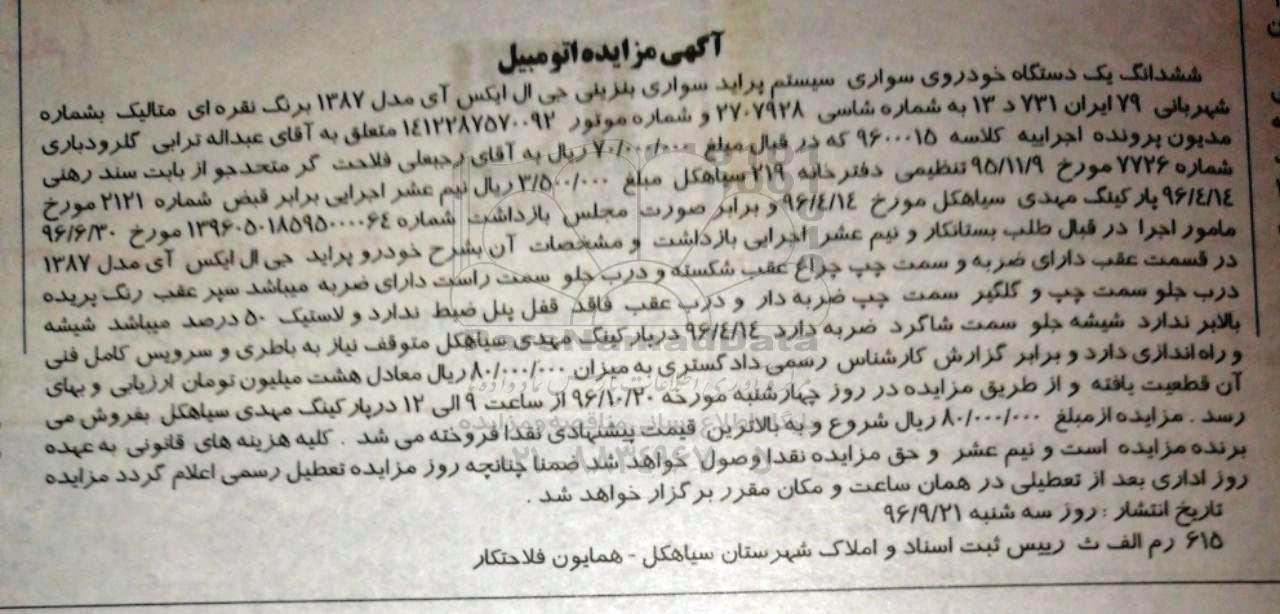 آگهی مزایده اتومبیل
ششدانگ یک دستگاه خودروی سواری سیستم پراید سواری بنزینی جی ال ایکس آی مدل ۱۳۸۷ برنگ نقره ای متالیک بشماره
شهربانی ۷۹ ایران ۷۳۱ د ۱۳ به شماره شاسی ۲۷۰۷۹۲۸ و شماره موتور ۱۴۱۲۲۸۷۵۷۰۰۹۲ متعلق به آقای عبداله ترابی گلرودباری
مدیون پرونده اجراییه کلاسه ۹۶۰۰۰۱۵ که در قبال مبلغ ۷۰/۰۰۰/۰۰۰ ریال به آقای رجبعلی فلاحت گر متحدجو از بابت سند رهنی
شماره ۷۷۲۶ مورخ ۹۵/۱۱/۹ تنظیمی دفترخانه ۲۱۹ سیاهکل مبلغ ۳/۵۰۰/۰۰۰ ریال نیم عشر اجرایی برابر قبض شماره ۲۱۲۱ مورخ
۹۶/۴/۱۴ پارکینگ مهدی سیاهکل مورخ ۹۶/۴/۱۴ و برابر صورت مجلس بازداشت شماره ۱۳۹۶۰۵۰۱۸۵۹۵۰۰۰۰۶۴ مورخ ۹۶/۶/۳۰
مامور اجرا در قبال طلب بستانکار و نیم عشر اجرایی بازداشت و مشخصات آن بشرح خودرو پراید جی ال ایکس آی مدل ۱۳۸۷
در قسمت عقب دارای ضربه و سمت چپ چراغ عقب شکسته و درب جلو سمت راست دارای ضربه میباشد سپر عقب رنگ پریده
درب جلو سمت چپ و گلگیر سمت چپ ضربه دار و درب عقب فاقد قفل پنل ضبط ندارد و لاستیک ۵۰ درصد میباشد شیشه
بالابر ندارد شیشه جلو سمت شاگرد ضربه دارد ۹۶/۴/۱۴ درپارکینگ مهدی سیاهکل متوقف نیاز به باطری و سرویس کامل فنی
و راه اندازی دارد و برابر گزارش کارشناس رسمی دادگستری به میزان ۸۰/۰۰۰/۰۰۰ ریال معادل هشت میلیون تومان ارزیابی و بهای
آن قطعیت یافته و از طریق مزایده در روز چهارشنبه مورخه ۹۶/۱۰/۲۰ از ساعت ۹ الی ۱۲ درپارکینگ مهدی سیاهکل بفروش می
رسد . مزایده ازمبلغ ۸۰/۰۰۰/۰۰۰ ریال شروع و به بالاترین قیمت پیشنهادی نقدا فروخته می شد . کلیه هزینه های قانونی به عهده
برنده مزایده است و نیم عشر و حق مزایده نقدا وصول خواهد شد ضمنا چنانچه روز مزایده تعطیل رسمی اعلام گردد مزایده
روز اداری بعد از تعطیلی در همان ساعت و مکان مقرر برگزار خواهد شد .
تاریخ انتشار : روز سه شنبه ۹۶/۹/۲۱
۶۱۵ رم الف ث رییس ثبت اسناد و املاک شهرستان سیاهکل - همایون فلاحتکار